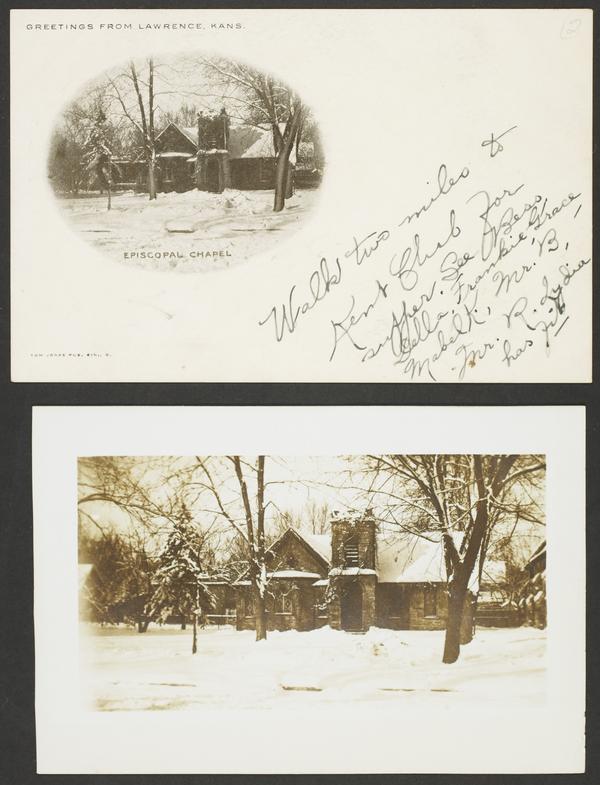 GREETINGS FROM LAWRENCE, KANS.
EPISCOPAL CHAPEL
Walk two miles to
Kent Club for
supper. See Bess,
Della, Frankie, Grace
Mabel K, Mr. B,
Mr. R. Lydia
has fit